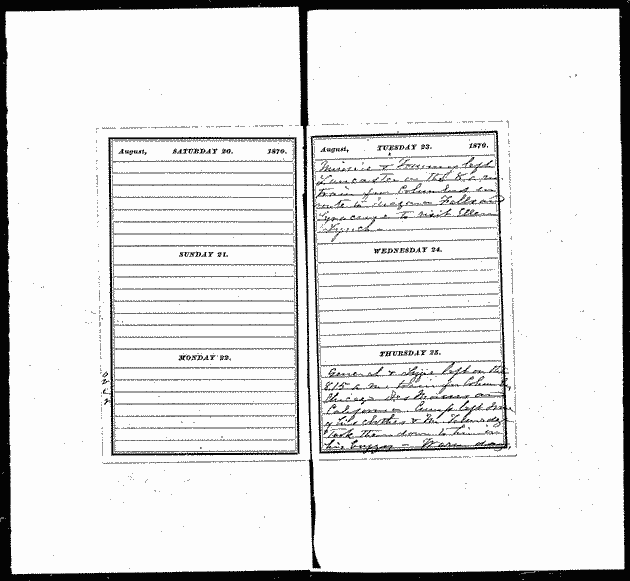 August, SATURDAY 20. 1870.
SUNDAY 21.
MONDAY 22.
August, TUESDAY 23. 1870.
Minnie & Tommy left
Lancaster on the 8 a m
train for Columbus en
route to Niagara Falls and
Syracuse to visit Ellen
Lynch
WEDNESDAY 24.
THURSDAY 25.
General & Lizzie left on the
8.15 a. m. train for Columbus,
Chicago Des Moines and
California Cump left some
of his clothes & Mr
Took them down to him in
his buggy — Warm day